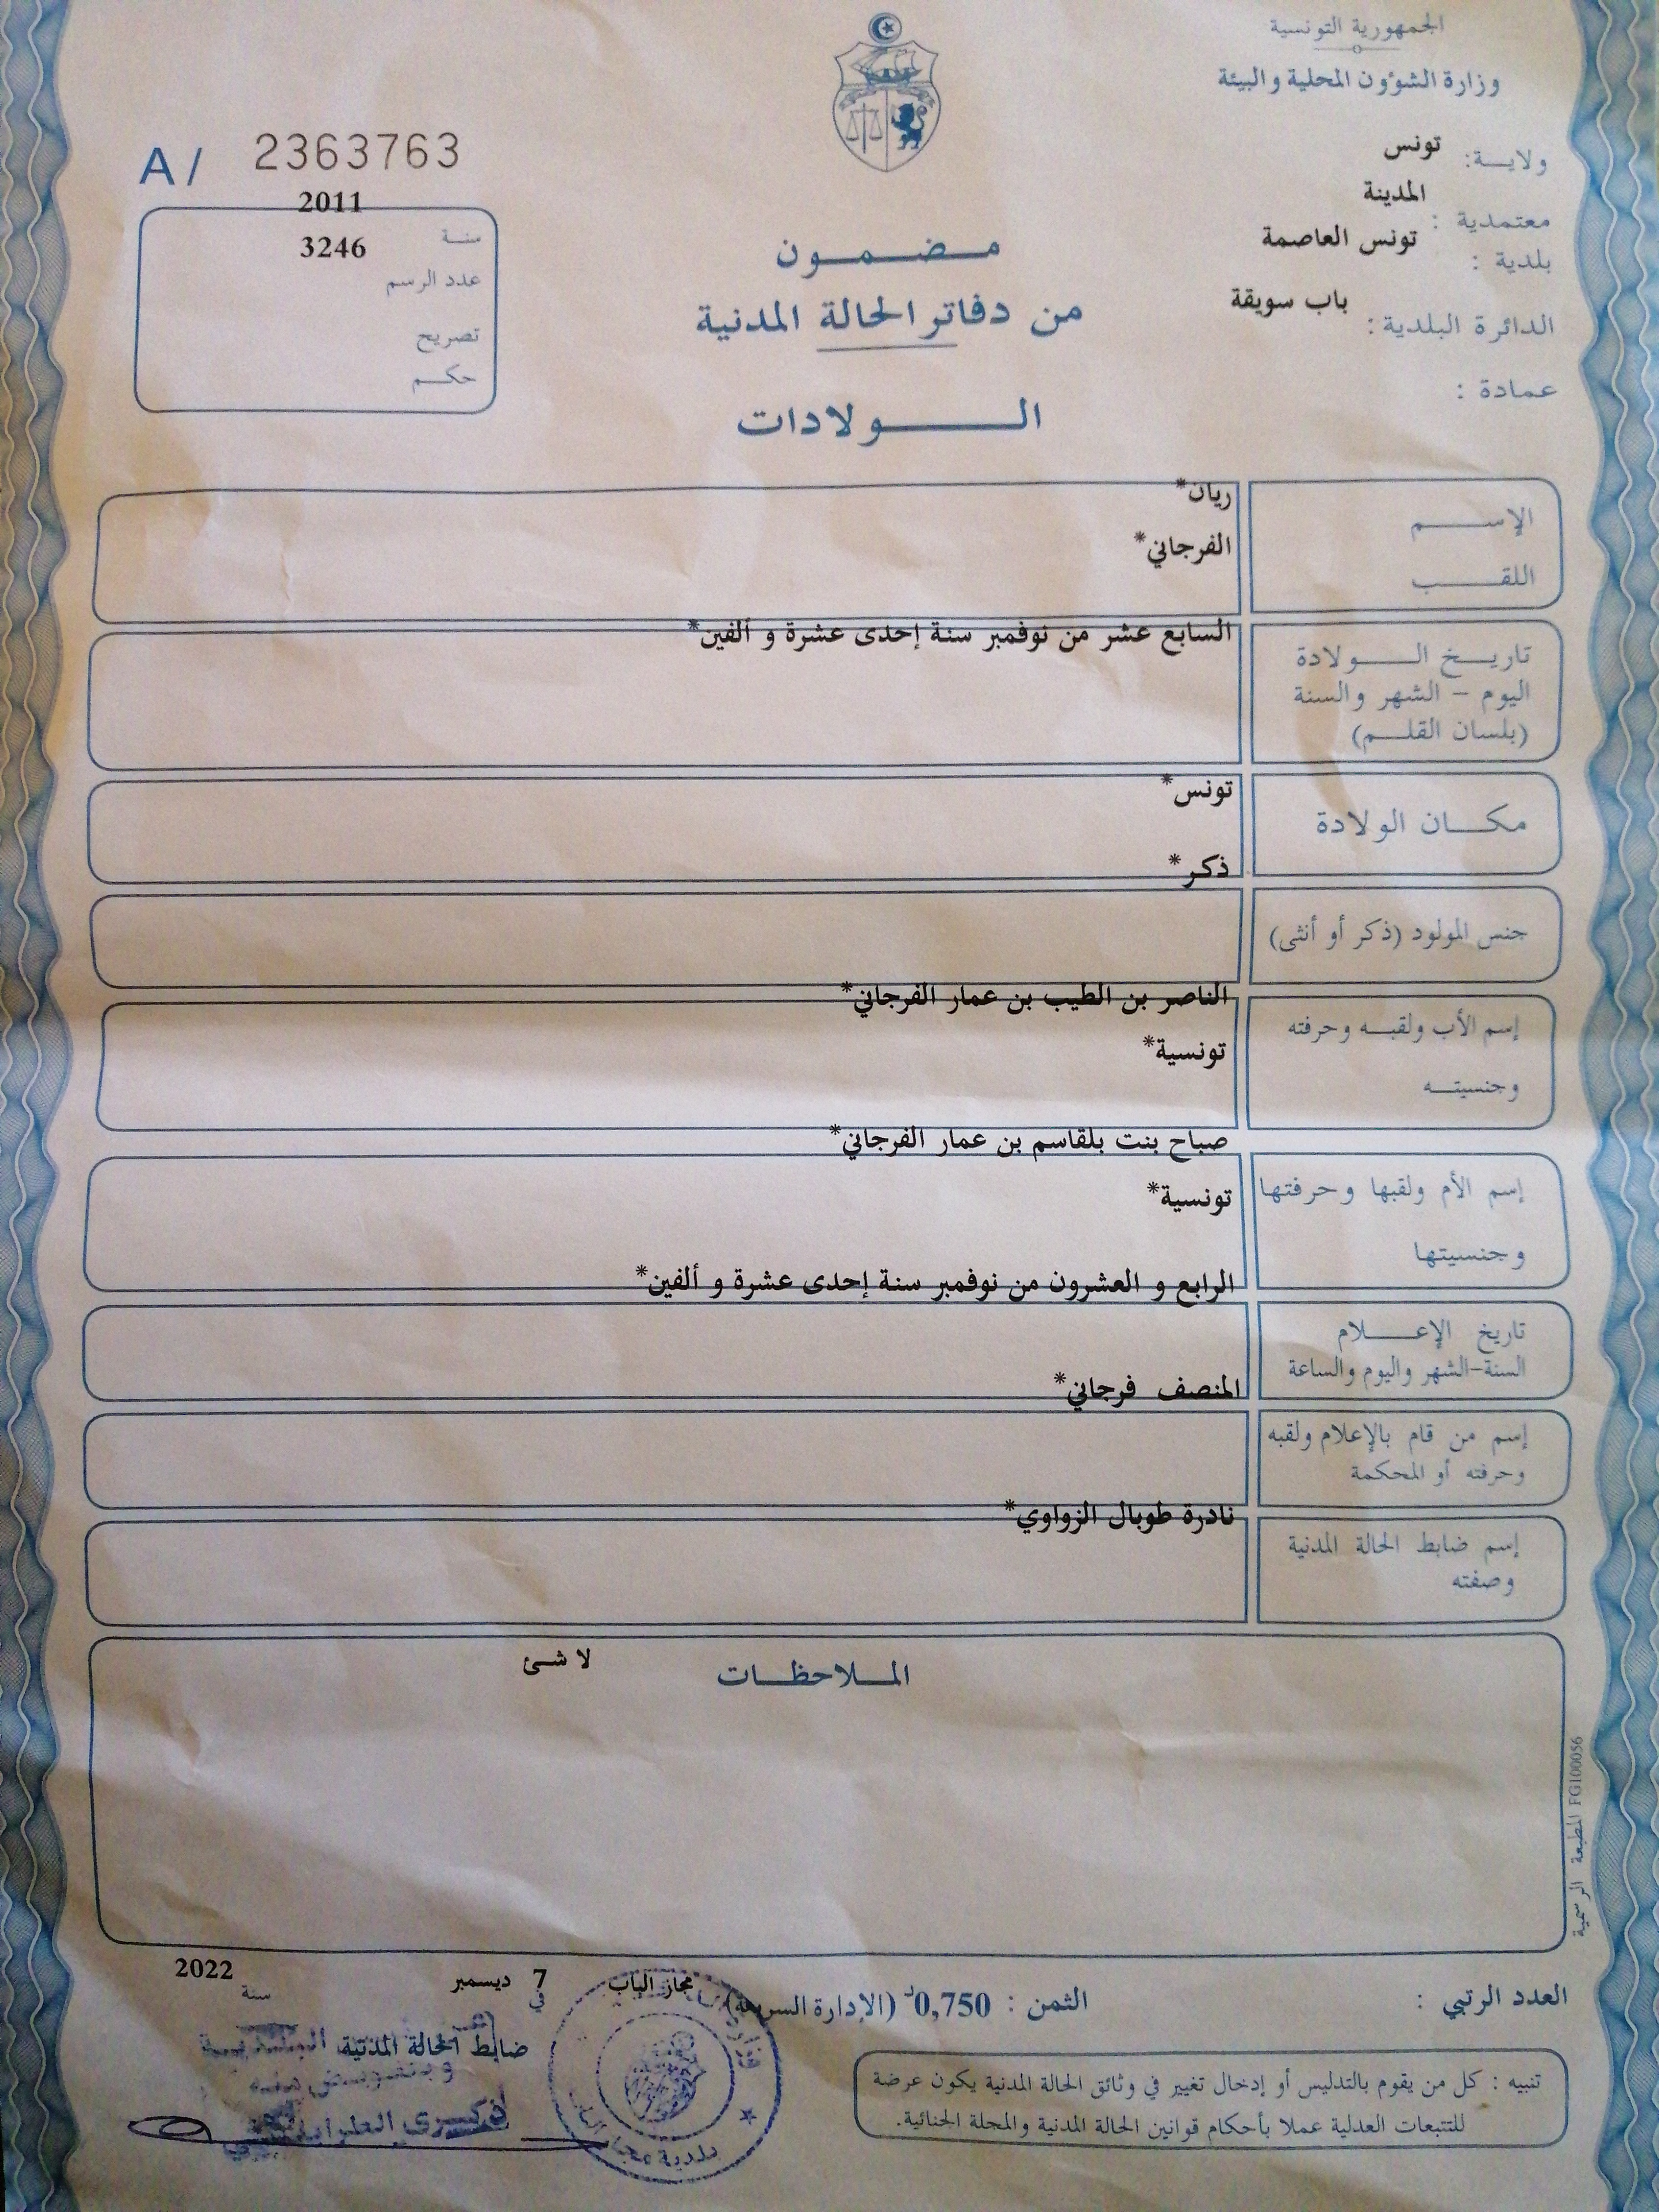 الجمهورية التونسية
وزارة الشؤون المحلية والبيئة
ولاية: تونس
معتمدية : المدينة
بلدية : تونس العاصمة
الدائرة البلدية: باب سويقة
عمادة :
A/ 2363763
سنة 2011
عدد الرسم 3246
تصريح
حكم
مضمون
من دفاتر الحالة المدنية
الولادات
الإسم ريان*
اللقب الفرجاني*
تاريخ الولادة السابع عشر من نوفمبر سنة إحدى عشرة و ألفين*
اليوم - الشهر والسنة
(بلسان القلم)
مكان الولادة تونس*
جنس المولود (ذكر أو أنثى) ذكر*
إسم الأب ولقبه وحرفته الناصر بن الطيب بن عمار الفرجاني*
وجنسيته تونسية*
إسم الأم ولقبها وحرفتها صباح بنت بلقاسم بن عمار الفرجاني*
وجنسيتها تونسية*
تاريخ الإعلام الرابع و العشرون من نوفمبر سنة إحدى عشرة و ألفين*
السنة-الشهر واليوم والساعة
إسم من قام بالإعلام ولقبه المنصف فرجاني*
وحرفته أو المحكمة
إسم ضابط الحالة المدنية نادرة طوبال الزواوي*
وصفته
الملاحظات لا شئ
المطبعة الرسمية FG100056
العدد الرتبي :
الثمن : 0,750د (الإدارة السريعة)
مجاز الباب في 7 ديسمبر سنة 2022
ضابط الحالة المدنية
وبتفويض منه
بلدية مجاز الباب
تنبيه : كل من يقوم بالتدليس أو إدخال تغيير في وثائق الحالة المدنية يكون عرضة
للتتبعات العدلية عملا بأحكام قوانين الحالة المدنية والمجلة الجنائية.